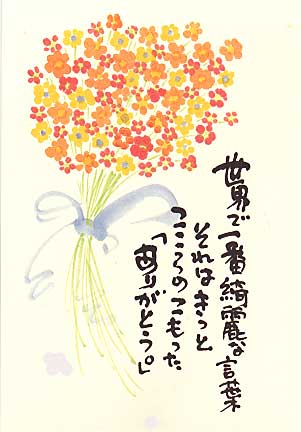 世界で一番綺麗な言葉
それはきっと
こころのこもった
「ありがとう。」